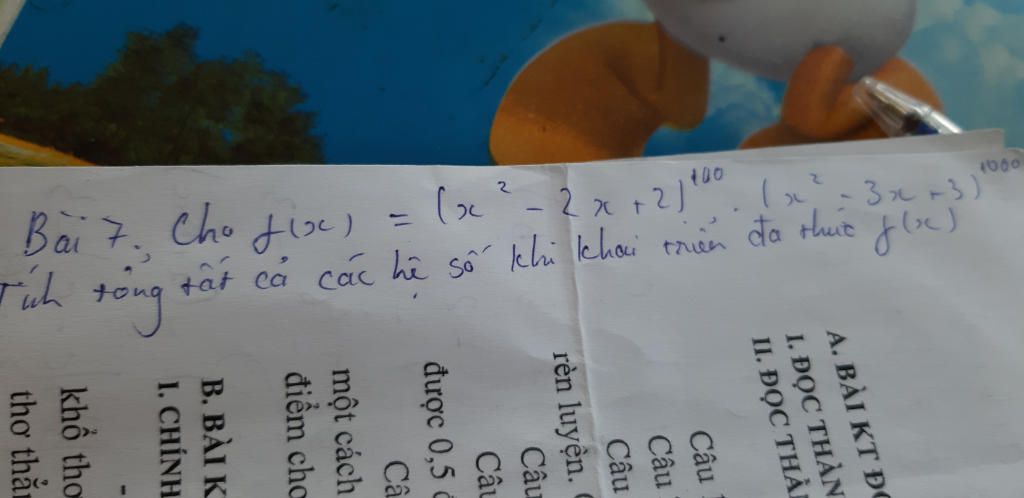 Bài 7. Cho f(x) = (x² - 2x + 2)¹⁰⁰ . (x² - 3x + 3)¹⁰⁰⁰
Tính tổng tất cả các hệ số khi khai triển đa thức f(x)
A. BÀI KT ĐỌ
I. ĐỌC THÀN
II. ĐỌC THẦ
Câu 1
Câu
Câu
rèn luyện. (
Câu
Câu
được 0,5 đ
Câ
một cách
điểm cho
B. BÀI K
I. CHÍNH
-
khổ thơ
thơ thẳn